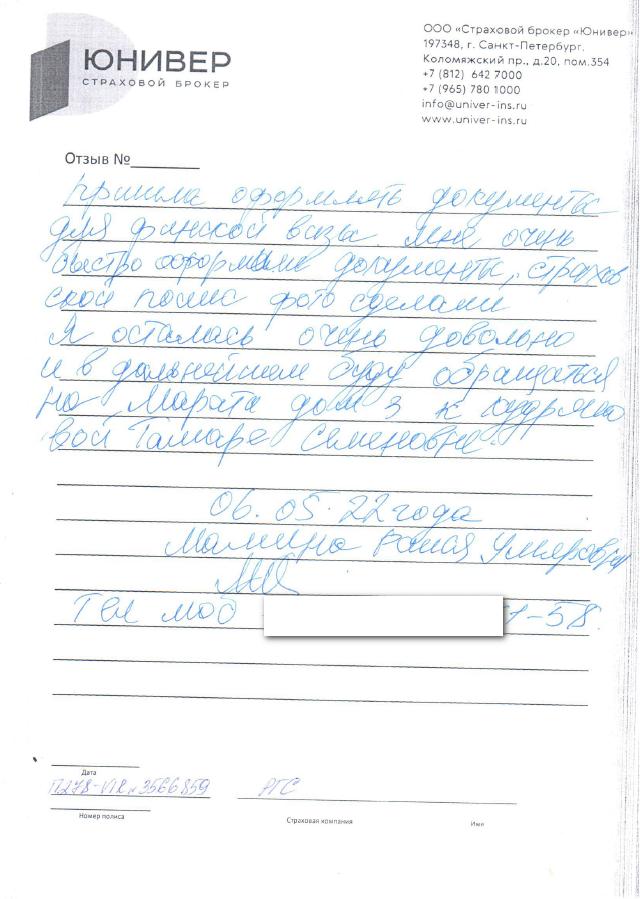 ЮНИВЕР
СТРАХОВОЙ БРОКЕР
ООО «Страховой брокер «Юнивер»
197348, г. Санкт-Петербург,
Коломяжский пр., д.20, пом.354
+7 (812) 642 7000
+7 (965) 780 1000
info@univer-ins.ru
www.univer-ins.ru
Отзыв №
пришла оформлять документы
для финской визы мне очень
быстро оформили документы, страхов
ской полис фото сделали
Я осталась очень довольно
и в дальнейшем буду обращаться
на Марата дом 3 к Кудряшо
вой Тамаре Семеновне.
06.05.22 года
Умяровна
Тел моб 1-58
Дата
3566859 РГС
Номер полиса
Страховая компания
Имя